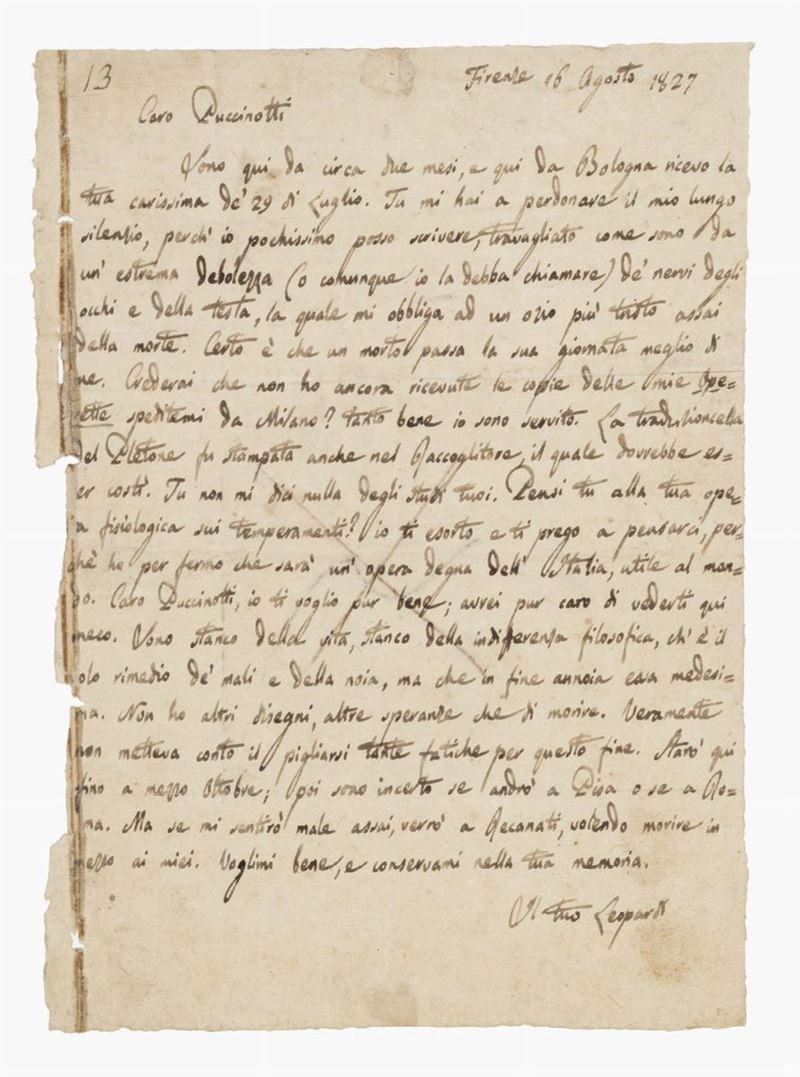 13
Firenze 16 Agosto 1827
Caro Puccinotti
Sono qui da circa due mesi, e qui da Bologna ricevo la
tua carissima de' 29 di Luglio. Tu mi hai a perdonare il mio lungo
silenzio, perch' io pochissimo posso scrivere, travagliato come sono da
un' estrema debolezza (o comunque io la debba chiamare) de' nervi degli
occhi e della testa, la quale mi obbliga ad un ozio più tristo assai
della morte. Certo è che un morto passa la sua giornata meglio di
me. Crederai che non ho ancora ricevute le copie delle mie Ope=
rette speditemi da Milano? tanto bene io sono servito. La traduzioncella
del Pletone fu stampata anche nel Raccoglitore, il quale dovrebbe es=
er costì. Tu non mi dici nulla degli studi tuoi. Pensi tu alla tua ope=
a fisiologica sui temperamenti? io ti esorto e ti prego a pensarci, per=
chè ho per fermo che sarà un' opera degna dell' Italia, utile al mon=
do. Caro Puccinotti, io ti voglio pur bene; avrei pur caro di vederti qui
meco. Sono stanco della vita, stanco della indifferenza filosofica, ch' è il
olo rimedio de' mali e della noia, ma che in fine annoia essa medesi=
ma. Non ho altri disegni, altre speranze che di morire. Veramente
non metteva conto il pigliarsi tante fatiche per questo fine. Starò qui
fino a mezzo Ottobre; poi sono incerto se andrò a Pisa o se a Ro=
ma. Ma se mi sentirò male assai, verrò a Recanati, volendo morire in
mezzo ai miei. Voglimi bene, e conservami nella tua memoria.
Il tuo Leopardi